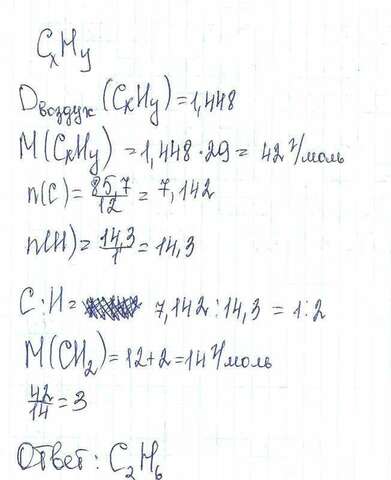 CxHy
Dвоздух (CxHy) = 1,448
M(CxHy) = 1,448 · 29 = 42 г/моль
n(C) = 85,7/12 = 7,142
n(H) = 14,3/1 = 14,3
C:H = 7,142 : 14,3 = 1:2
M(CH2) = 12+2 = 14 г/моль
42/14 = 3
Ответ: C2H6